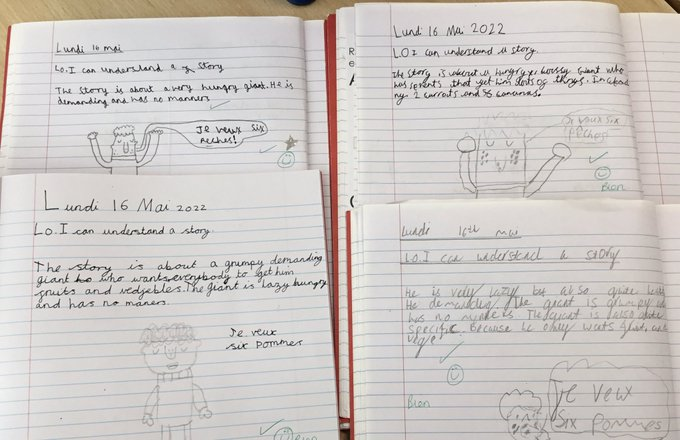 Lundi 16 mai
Lo. I can understand a story
The story is about a very hungry giant. He is
demanding and has no manners
Je veux six
Peches!
Lundi 16 Mai 2022
LO I can understand a story.
The story is about a hungry, bossy giant who
has servents that get him lots of things. Including
2 carrots and 56 bananas.
Je veux six
peches
Bien
Lundi 16 Mai 2022
LO. I can understand a story.
The story is about a grumpy demanding
giant who wants everybody to get him
fruits and vedgetbles. The giant is lazy hungry
and has no maners.
Je veux
six pommes
Bien
Lundi 16th mai
LO. I can understand a story
He is very lazy but also quite
He demanding. The giant is grumpy
has no manners. The giant is also quite
specific because he only wants fruit and
vege
Bien
Je veux
six pommes